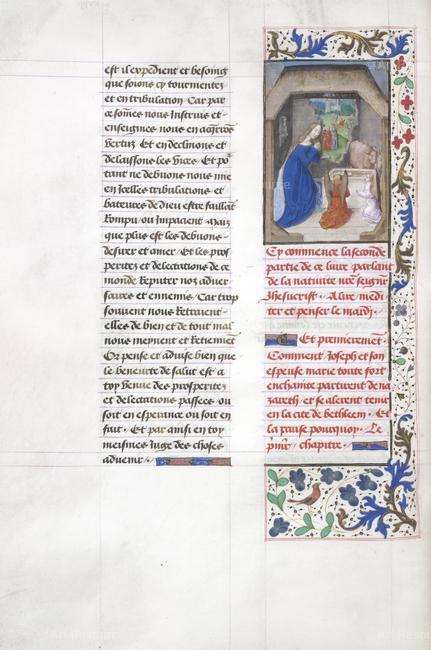 est il expedient et besoing
que soions cy tourmentez
et en tribulation Car par
ce sommes nous Instruis et
enseignez nous en acqrons
vertuz Et en declinons et
delaissons les vices Et po
tant ne debuons nous mie
en Icelles tribulations et
bateures de dieu estre faillãs
Rompu ou Impacient Maiz
que plus est les debuons
desirer et amer Et les pros
peritez et delectations de ce
monde Reputer noz aduer
saires et ennemis Car trop
souuent nous Retraient
elles de bien et de tout mal
nous meynent et Retiennẽt
Or pense et aduise bien que
le beneurte de salut est a
toy venue des prosperitez
et delectations passees ou
soit en esperance ou soit en
fait Et par ainsi en toy
meismes Juge des choses
aduenir
Cy commence la seconde
partie de ce liure parlant
de la natiuite nre seignr
Jhesucrist A lire medi
ter et penser le mardi
Et premieremẽt
Comment Joseph et son
espeuse marie toute fort
enchainte partirent de na
zareth et se alerent tenir
en la cite de bethleem Et
la cause pourquoy Le
pmier chapitre